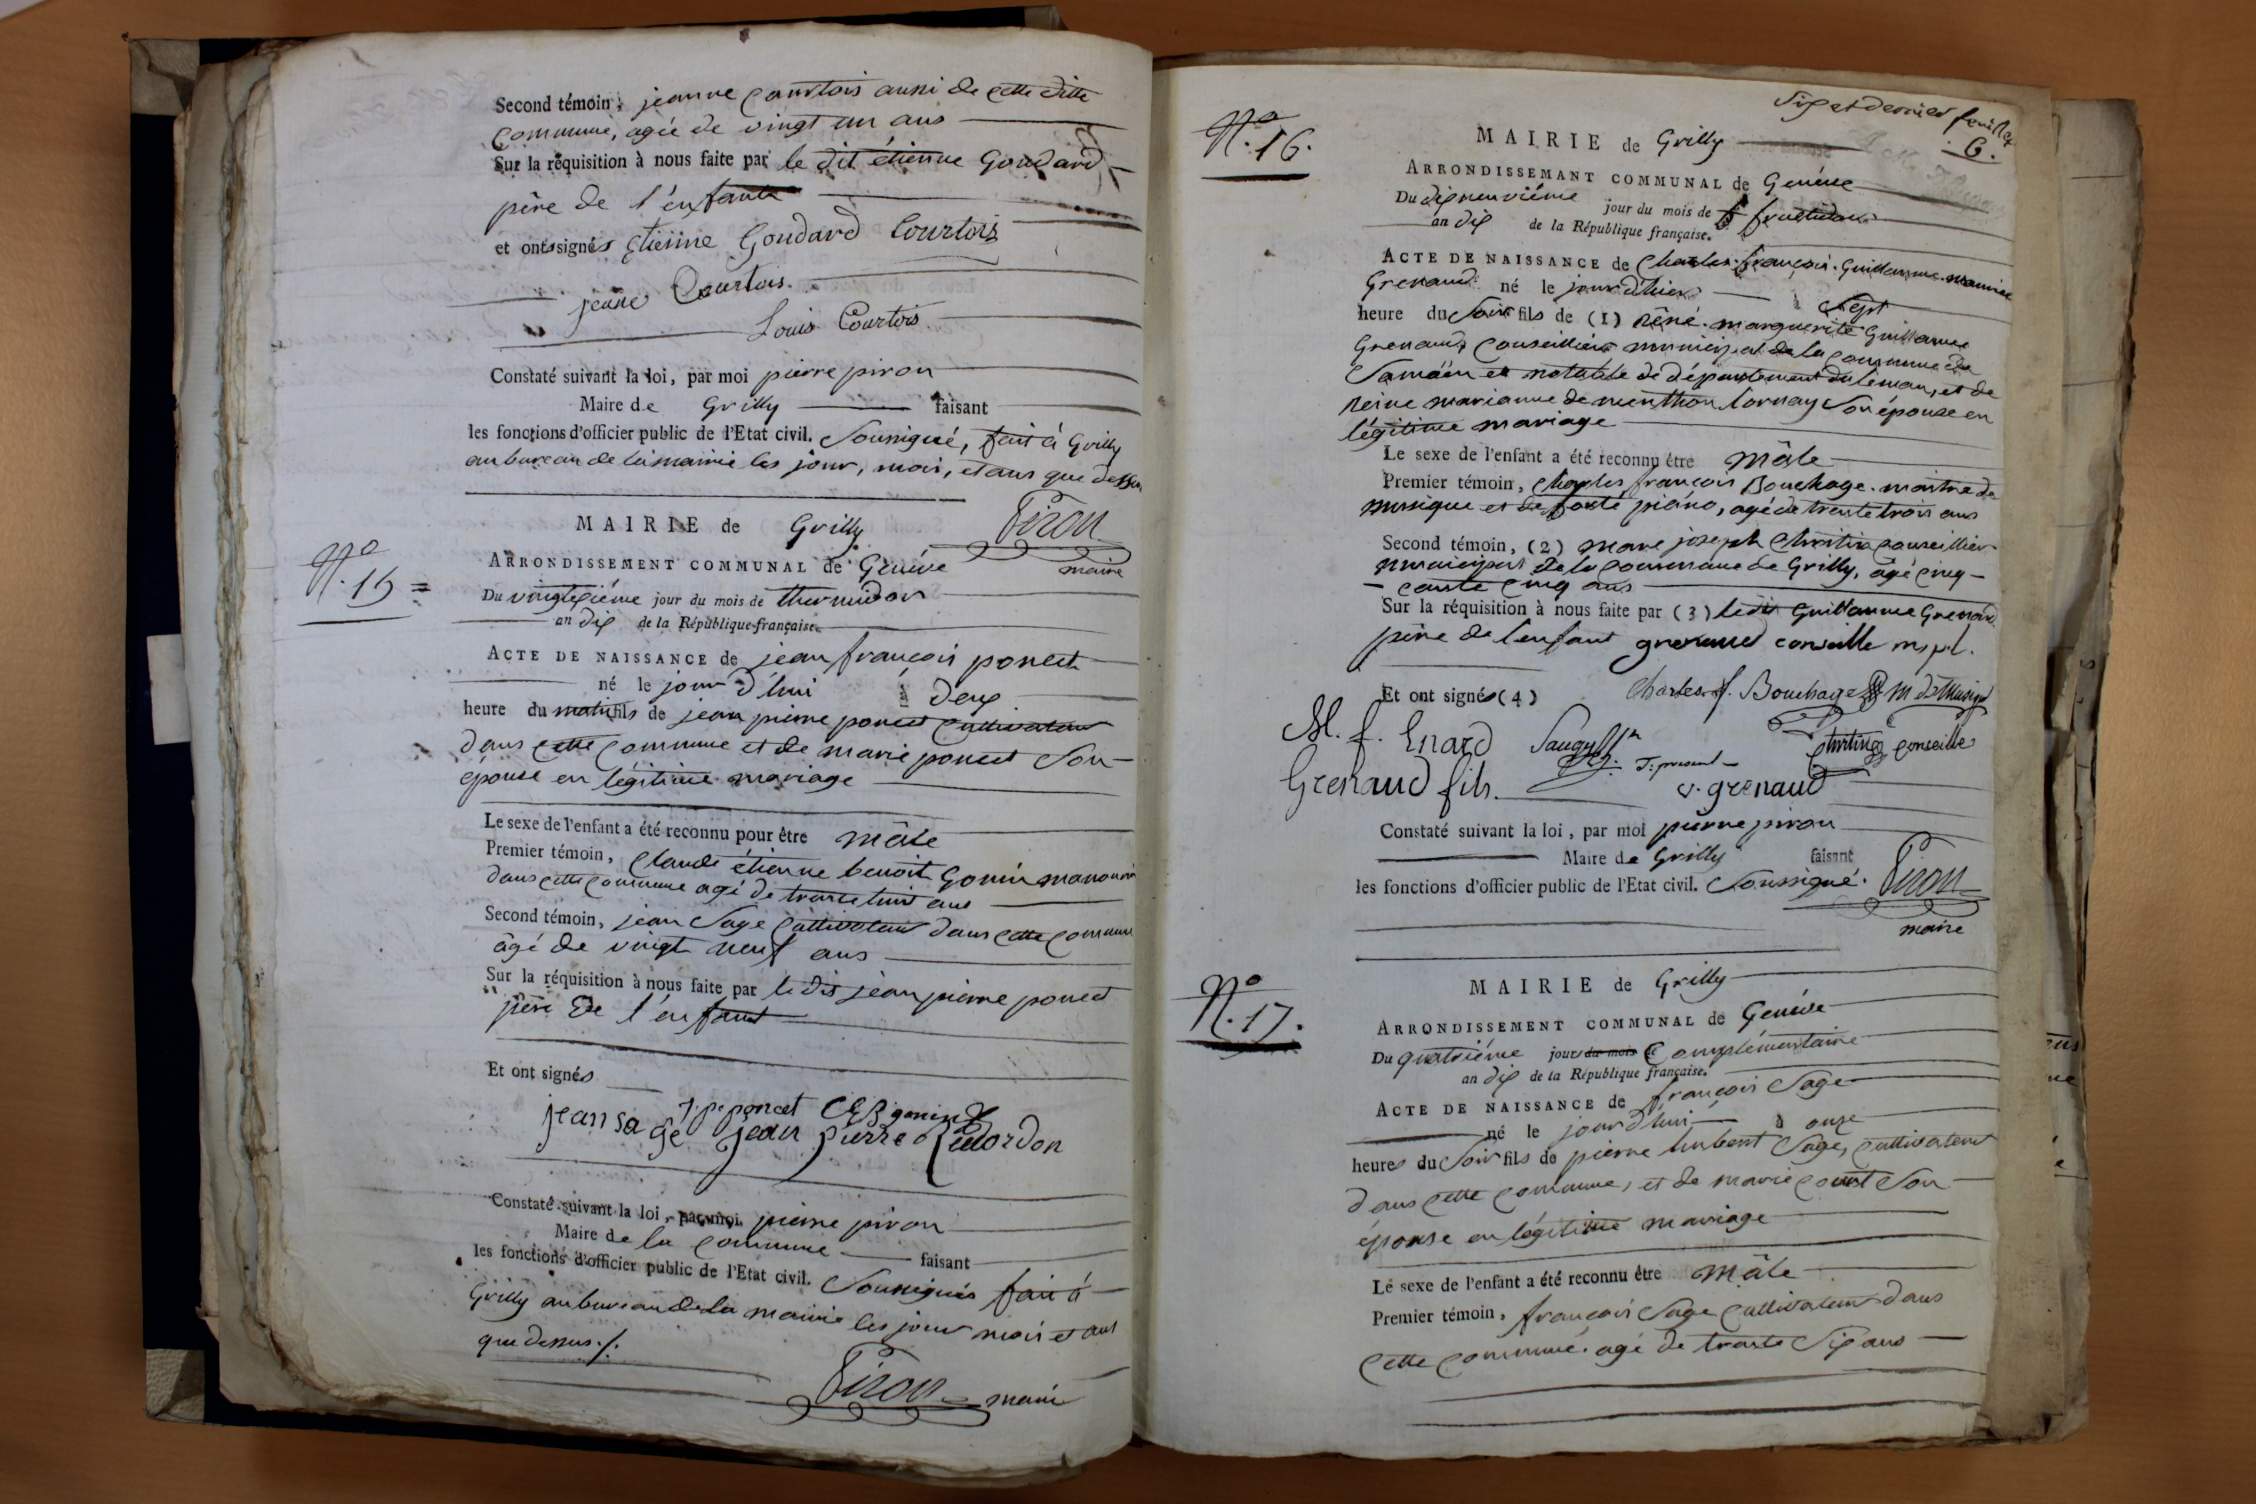 Second témoin, jeanne Courtois aussi de cette ditte
Commune, agée de vingt un ans
Sur la réquisition à nous faite par le dit étienne Goudard
père de l'enfante
et ont signés etienne Goudard Courtois
jeane Courtois.
Louis Courtois
Constaté suivant la loi, par moi pierre piron
Maire de Grilly faisant
les fonctions d'officier public de l'Etat civil. Soussigné, fait à Grilly
au bureau de la mairie les jour, mois, et ans que dessus
Piron
maire
N.o 15 =
MAIRIE de Grilly
ARRONDISSEMENT COMMUNAL de Genéve
Du vingtsixiéme jour du mois de thermidor
an dix de la République française.
ACTE DE NAISSANCE de jean françois poncet
né le jour d'hui à deux
heure du matin fils de jean pierre poncet Cultivateur
dans cette Commune et de marie poncet Son
épouse en légitime mariage
Le sexe de l'enfant a été reconnu pour être mâle
Premier témoin, Claude étienne benoit Gonin
dans cette commune agé de trante huit ans
Second témoin, jean Sage Cultivateur dans cette commune
âgé de vingt neuf ans
Sur la réquisition à nous faite par le dit jean pierre poncet
père de l'enfant
Et ont signés
j. p. poncet C E B gonin
jean sage jean pierre
Constaté suivant la loi, par moi pierre piron
Maire de la commune faisant
les fonctions d'officier public de l'Etat civil. Soussignés fait à
Grilly au bureau de la mairie les jour mois et ans
que dessus ./.
Piron maire
Six et dernier feuillet
6.
N.o 16.
MAIRIE de Grilly
ARRONDISSEMANT COMMUNAL de Genéve
Du dixneuviéme jour du mois de fructidor
an dix de la République française.
ACTE DE NAISSANCE de Charles. françois. Guillaume. maurice
Grenaud né le jour d'hier à Sept
heure du Soir fils de (1) Réné. marguerite Guillaume
Grenaud, Conseillier municipal de la Commune de
et notable de département du leman, et de
Reine marianne de menthon lornay Son épouse en
légitime mariage
Le sexe de l'enfant a été reconnu être mâle
Premier témoin, Charles françois Bouchage. maitre de
musique et de forté piano, agé de trente trois ans
Second témoin, (2) marc joseph Conseillier
municipal de la Commune de Grilly, agé cinq-
cante Cinq ans
Sur la réquisition à nous faite par (3) ledit Guillaume Grenaud
père de l'enfant grenaud conseille mpl.
Et ont signés (4) Charles. f. Bouchage M de Musique
M. f. Enard conseille
T: present
Grenaud fils. v. grenaud
Constaté suivant la loi, par moi pierre piron
Maire de Grilly faisant
les fonctions d'officier public de l'Etat civil. Soussigné. Piron
maire
N.o 17.
MAIRIE de Grilly
ARRONDISSEMENT COMMUNAL de Genéve
Du quatriéme jour du mois de Complémentaire
an dix de la République française.
ACTE DE NAISSANCE de françois Sage
né le jour d'hui à onze
heures du Soir fils de pierre humbert Sage, Cultivateur
dans cette commune, et de marie Son
épouse en légitime mariage
Le sexe de l'enfant a été reconnu être mâle
Premier témoin, françois Sage Cultivateur dans
Cette commune. agé de trante Six ans